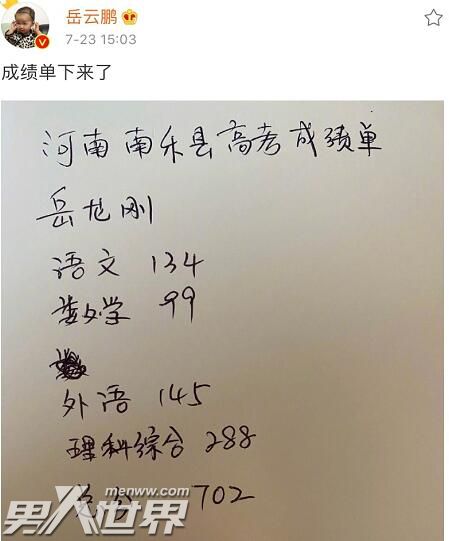 岳云鹏
7-23 15:03
成绩单下来了
河南南乐县高考成绩单
岳龙刚
语文 134
数学 99
外语 145
理科综合 288
总分 702
menww.com
男人世界